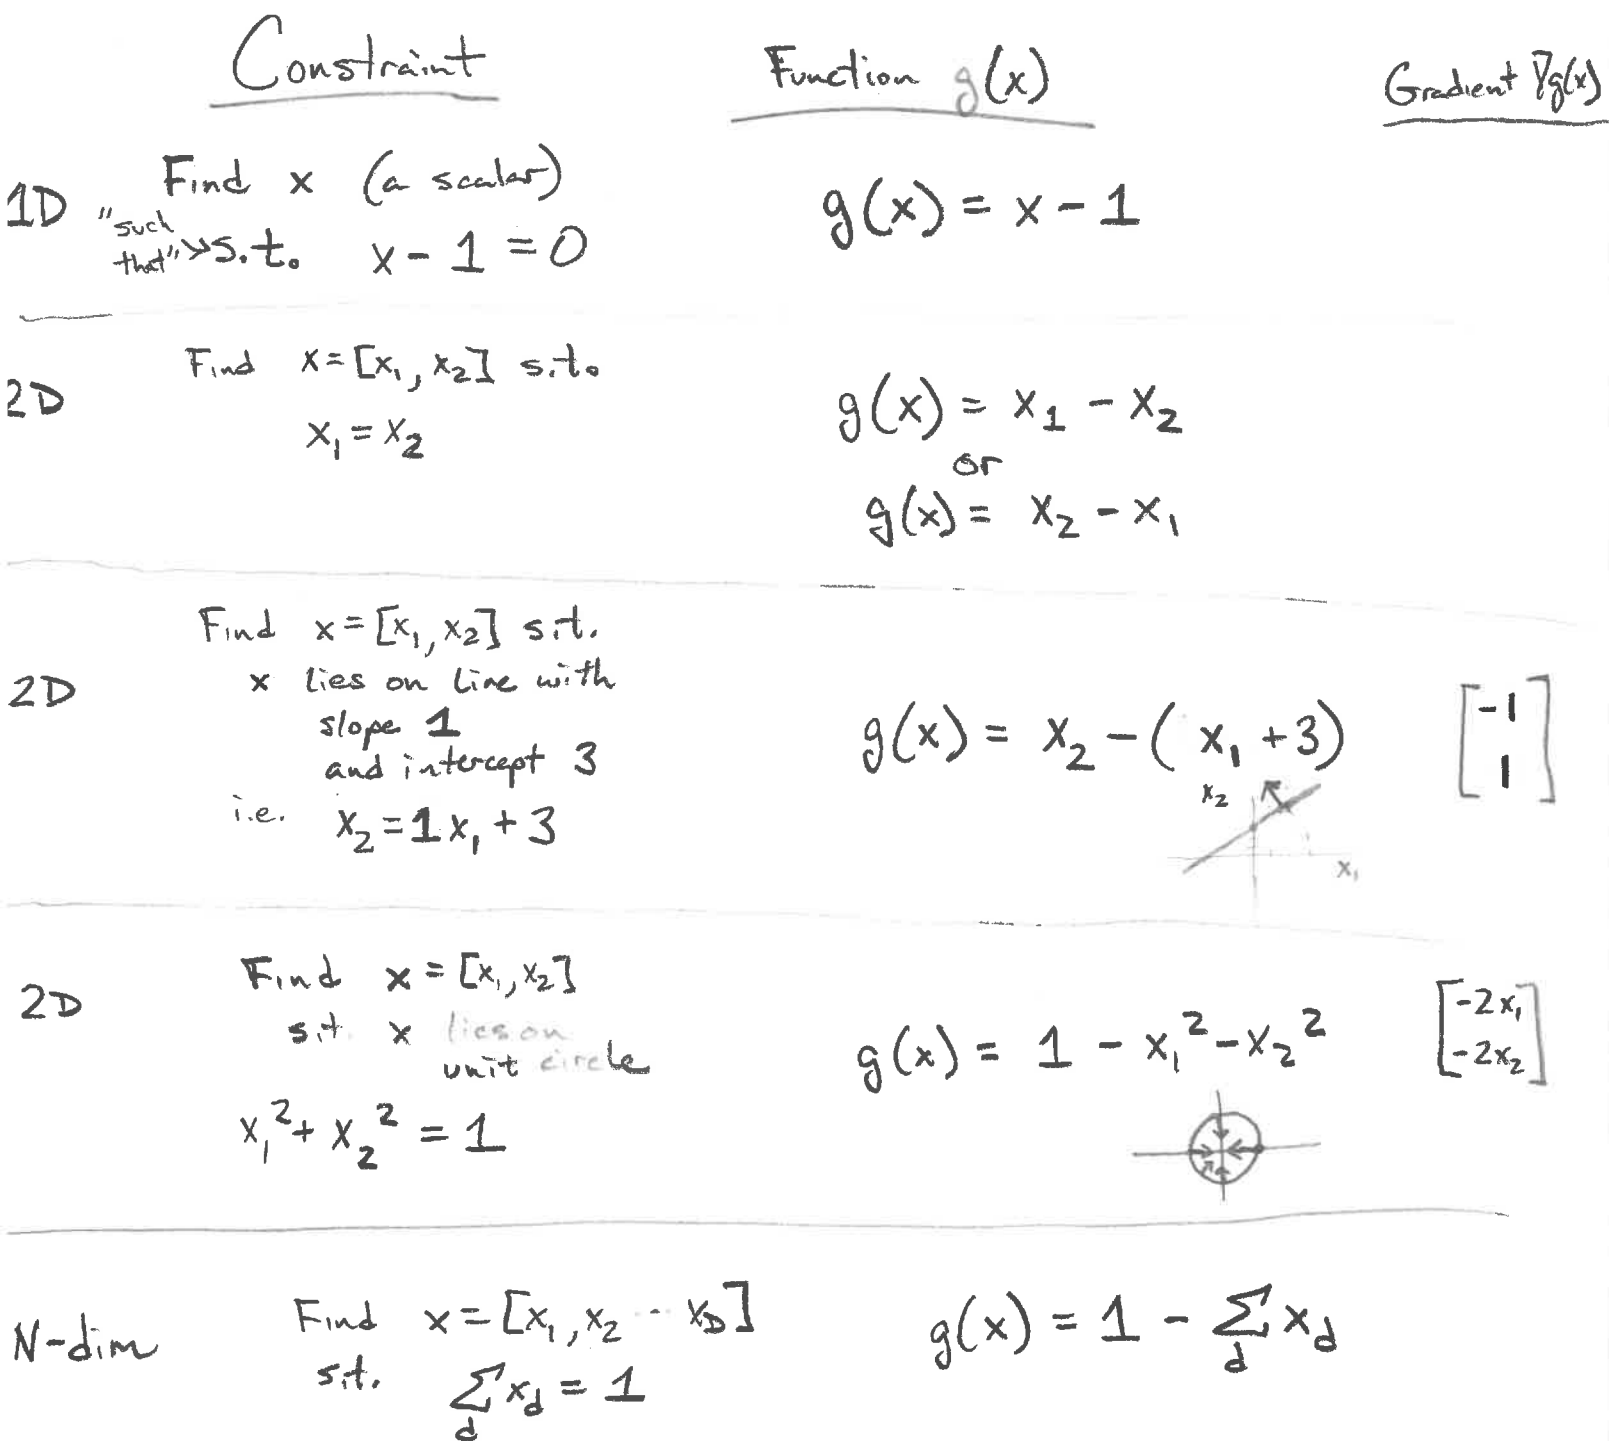 Constraint Function g(x) Gradient ∇g(x)
1D Find x (a scalar)
"such that" → s.t. x - 1 = 0
g(x) = x - 1
2D Find x = [x₁, x₂] s.t.
x₁ = x₂
g(x) = x₁ - x₂
or
g(x) = x₂ - x₁
2D Find x = [x₁, x₂] s.t.
x lies on line with
slope 1
and intercept 3
i.e. x₂ = 1x₁ + 3
g(x) = x₂ - (x₁ + 3)
x₂
x₁
[-1
1]
2D Find x = [x₁, x₂]
s.t. x lies on
unit circle
x₁² + x₂² = 1
g(x) = 1 - x₁² - x₂²
[-2x₁
-2x₂]
N-dim Find x = [x₁, x₂ ... x_D]
s.t. ∑_d x_d = 1
g(x) = 1 - ∑_d x_d